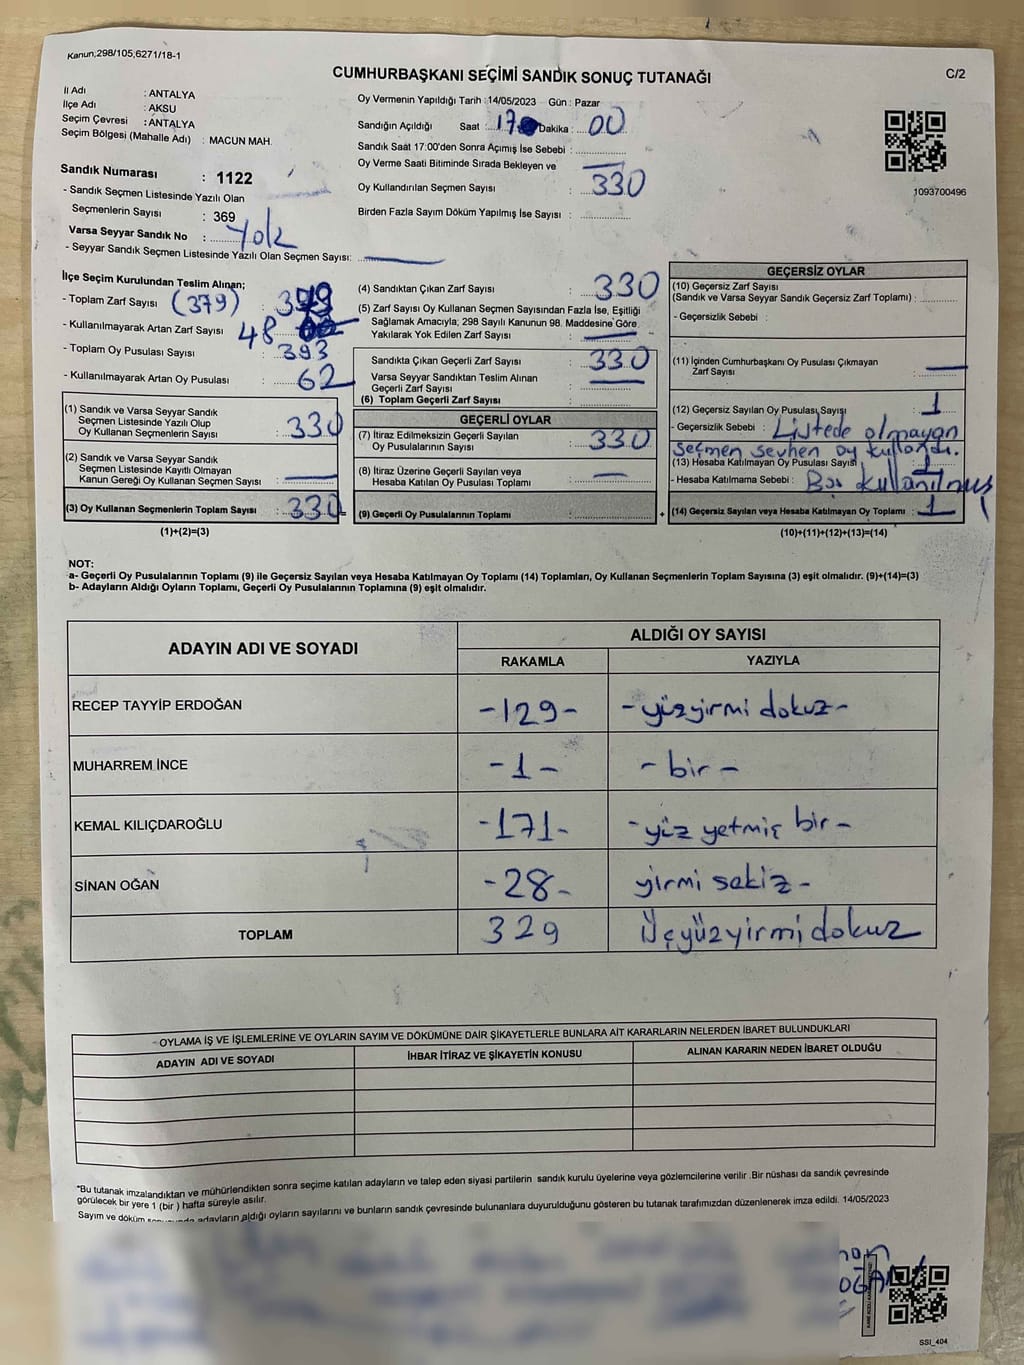 Kanun;298/105,6271/18-1
CUMHURBAŞKANI SEÇİMİ SANDIK SONUÇ TUTANAĞI
C/2
İl Adı : ANTALYA
İlçe Adı : AKSU
Seçim Çevresi : ANTALYA
Seçim Bölgesi (Mahalle Adı) : MACUN MAH.
Sandık Numarası : 1122
- Sandık Seçmen Listesinde Yazılı Olan
Seçmenlerin Sayısı : 369
Varsa Seyyar Sandık No : Yok
- Seyyar Sandık Seçmen Listesinde Yazılı Olan Seçmen Sayısı:
Oy Vermenin Yapıldığı Tarih : 14/05/2023 Gün : Pazar
Sandığın Açıldığı Saat : 17 Dakika : 00
Sandık Saat 17:00'den Sonra Açımış İse Sebebi :
Oy Verme Saati Bitiminde Sırada Bekleyen ve
Oy Kullandırılan Seçmen Sayısı : 330
Birden Fazla Sayım Döküm Yapılmış İse Sayısı :
1093700496
İlçe Seçim Kurulundan Teslim Alınan;
- Toplam Zarf Sayısı (379) :
- Kullanılmayarak Artan Zarf Sayısı 48
- Toplam Oy Pusulası Sayısı : 393
- Kullanılmayarak Artan Oy Pusulası : 62
(1) Sandık ve Varsa Seyyar Sandık
Seçmen Listesinde Yazılı Olup
Oy Kullanan Seçmenlerin Sayısı : 330
(2) Sandık ve Varsa Seyyar Sandık
Seçmen Listesinde Kayıtlı Olmayan
Kanun Gereği Oy Kullanan Seçmen Sayısı :
(3) Oy Kullanan Seçmenlerin Toplam Sayısı : 330
(1)+(2)=(3)
(4) Sandıktan Çıkan Zarf Sayısı : 330
(5) Zarf Sayısı Oy Kullanan Seçmen Sayısından Fazla İse, Eşitliği
Sağlamak Amacıyla; 298 Sayılı Kanunun 98. Maddesine Göre
Yakılarak Yok Edilen Zarf Sayısı :
Sandıkta Çıkan Geçerli Zarf Sayısı : 330
Varsa Seyyar Sandıktan Teslim Alınan
Geçerli Zarf Sayısı :
(6) Toplam Geçerli Zarf Sayısı :
GEÇERLİ OYLAR
(7) İtiraz Edilmeksizin Geçerli Sayılan
Oy Pusulalarının Sayısı : 330
(8) İtiraz Üzerine Geçerli Sayılan veya
Hesaba Katılan Oy Pusulaları Toplamı :
(9) Geçerli Oy Pusulalarının Toplamı :
GEÇERSİZ OYLAR
(10) Geçersiz Zarf Sayısı
(Sandık ve Varsa Seyyar Sandık Geçersiz Zarf Toplamı) :
- Geçersizlik Sebebi :
(11) İçinden Cumhurbaşkanı Oy Pusulası Çıkmayan
Zarf Sayısı :
(12) Geçersiz Sayılan Oy Pusulası Sayısı : 1
- Geçersizlik Sebebi : Listede olmayan
seçmen sevhen oy kullandı.
(13) Hesaba Katılmayan Oy Pusulası Sayısı : 1
- Hesaba Katılmama Sebebi : Boş kullanılmış
+ (14) Geçersiz Sayılan veya Hesaba Katılmayan Oy Toplamı : 1
(10)+(11)+(12)+(13)=(14)
NOT:
a- Geçerli Oy Pusulalarının Toplamı (9) ile Geçersiz Sayılan veya Hesaba Katılmayan Oy Toplamı (14) Toplamları, Oy Kullanan Seçmenlerin Toplam Sayısına (3) eşit olmalıdır. (9)+(14)=(3)
b- Adayların Aldığı Oyların Toplamı, Geçerli Oy Pusulalarının Toplamına (9) eşit olmalıdır.
ADAYIN ADI VE SOYADI
ALDIĞI OY SAYISI
RAKAMLA YAZIYLA
RECEP TAYYİP ERDOĞAN -129- -yüzyirmi dokuz-
MUHARREM İNCE -1- -bir-
KEMAL KILIÇDAROĞLU -171- -yüz yetmiş bir-
SİNAN OĞAN -28- yirmi sekiz-
TOPLAM 329 Üçyüzyirmidokuz
- OYLAMA İŞ VE İŞLEMLERİNE VE OYLARIN SAYIM VE DÖKÜMÜNE DAİR ŞİKAYETLERLE BUNLARA AİT KARARLARIN NELERDEN İBARET BULUNDUKLARI
ADAYIN ADI VE SOYADI İHBAR İTİRAZ VE ŞİKAYETİN KONUSU ALINAN KARARIN NEDEN İBARET OLDUĞU
*Bu tutanak imzalandıktan ve mühürlendikten sonra seçime katılan adayların ve talep eden siyasi partilerin sandık kurulu üyelerine veya gözlemcilerine verilir .Bir nüshası da sandık çevresinde
görülecek bir yere 1 (bir ) hafta süreyle asılır.
Sayım ve döküm adayların aldığı oyların sayılarını ve bunların sandık çevresinde bulunanlara duyurulduğunu gösteren bu tutanak tarafımızdan düzenlenerek imza edildi. 14/05/2023
SSI_404